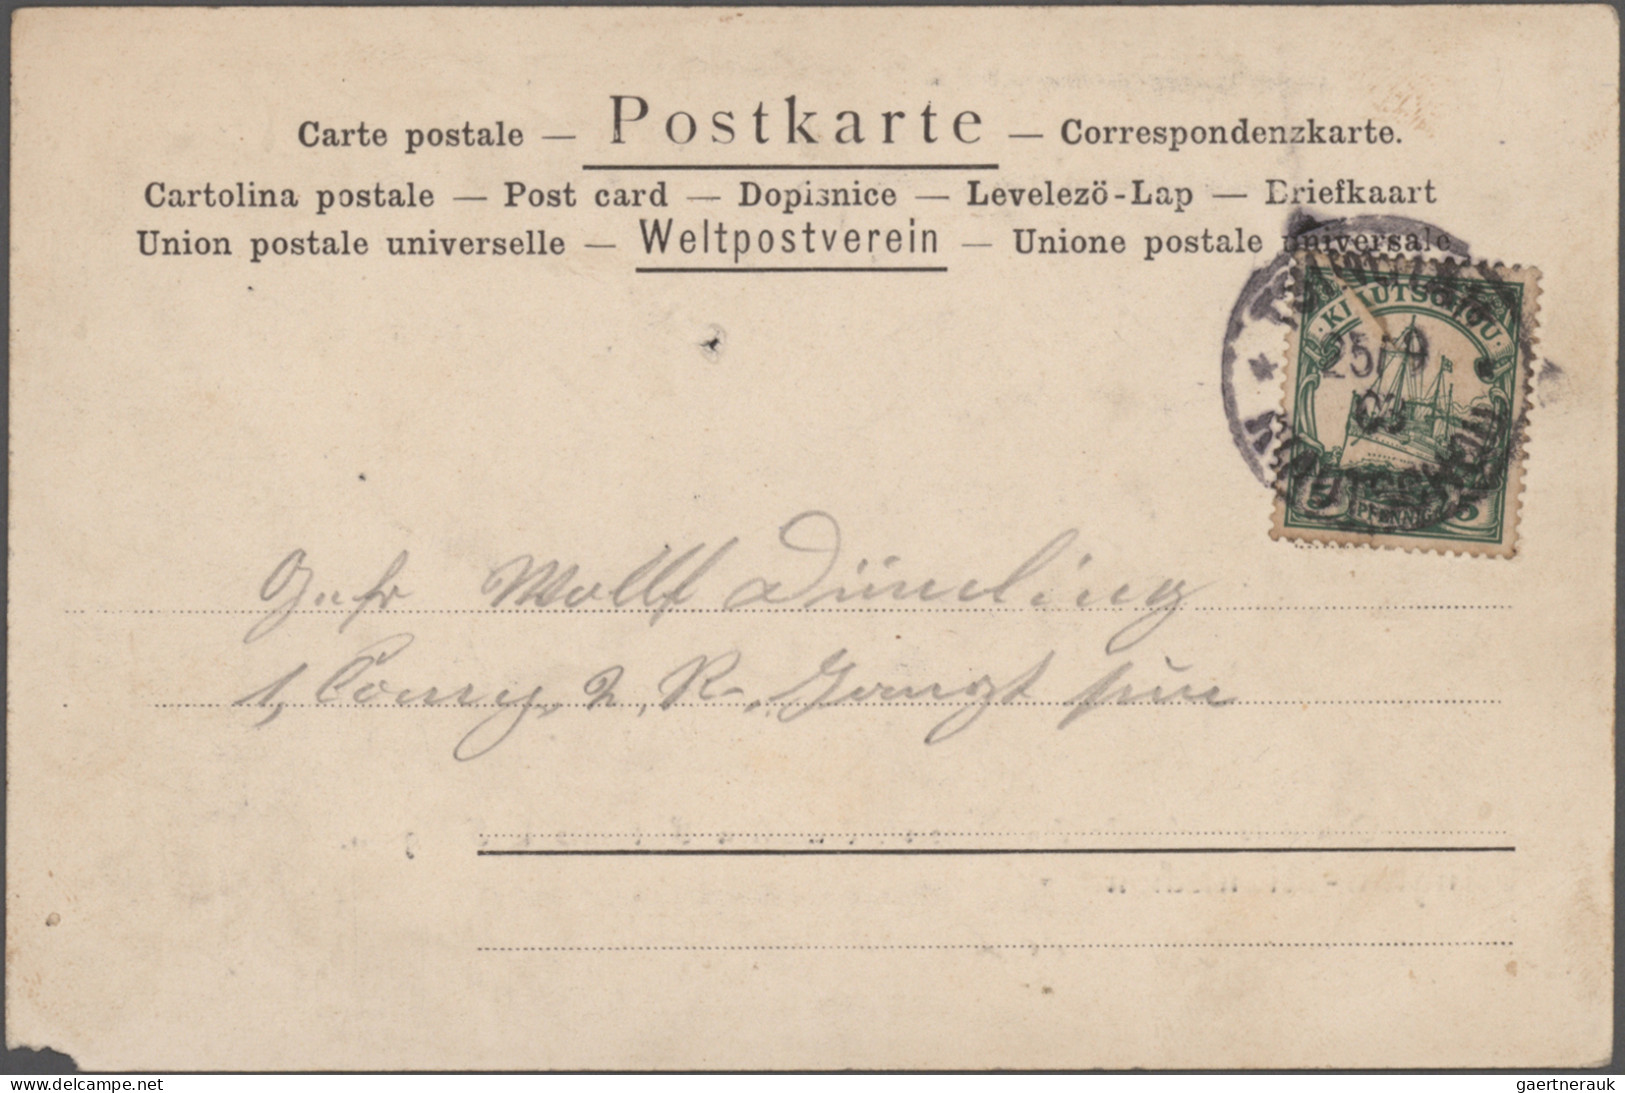 Carte postale — Postkarte — Correspondenzkarte.
Cartolina postale — Post card — Dopisnice — Levelezö-Lap — Briefkaart
Union postale universelle — Weltpostverein — Unione postale universale
KIAUTSCHOU
25/9
03
KIAUTSCHOU
5 PFENNIG 5
Wolff
1, Comp, 2, R.
delcampe.net
gaertnerauk